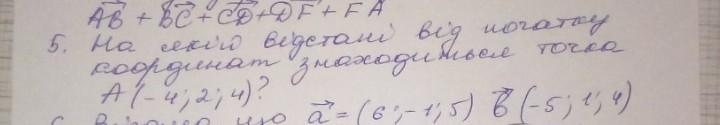 AB + BC + CD + DF + FA
5. На якій відстані від початку
координат знаходиться точка
A (-4; 2; 4)?
a = (6; -1; 5) b (-5; 1; 4)